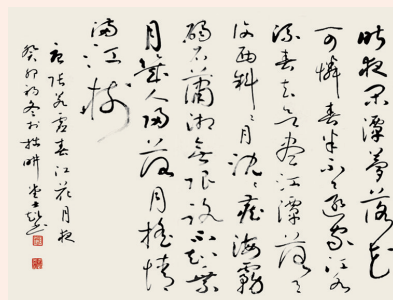 昨夜閑潭夢落花
可憐春半不還家江水
流春去欲盡江潭落月
復西斜斜月沉沉藏海霧
碣石瀟湘無限路不知乘
月幾人歸落月搖情
滿江樹
唐張若虛春江花月夜
癸卯初冬於